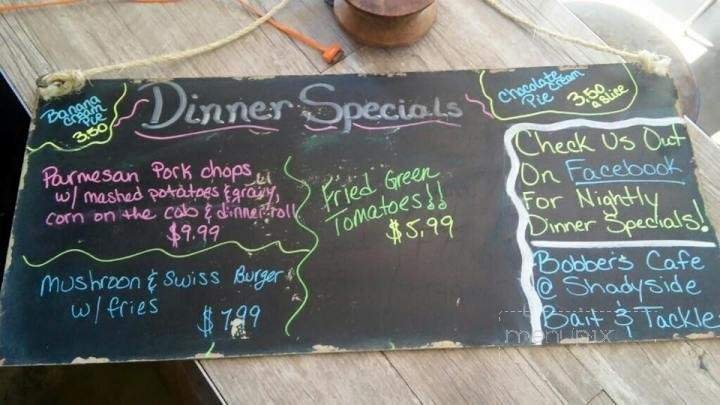 Banana
Cream
Pie
3.50
Dinner Specials
Chocolate Cream
Pie 3.50
a slice
Parmesan Pork chops
w/ mashed potatoes & gravy,
corn on the cob & dinner roll
$9.99
Mushroon & Swiss Burger
w/ fries
$7.99
Fried Green
Tomatoes!!
$5.99
Check Us Out
On Facebook
For Nightly
Dinner Specials!
Bobber's Cafe
@ Shadyside
Bait & Tackle
menupix